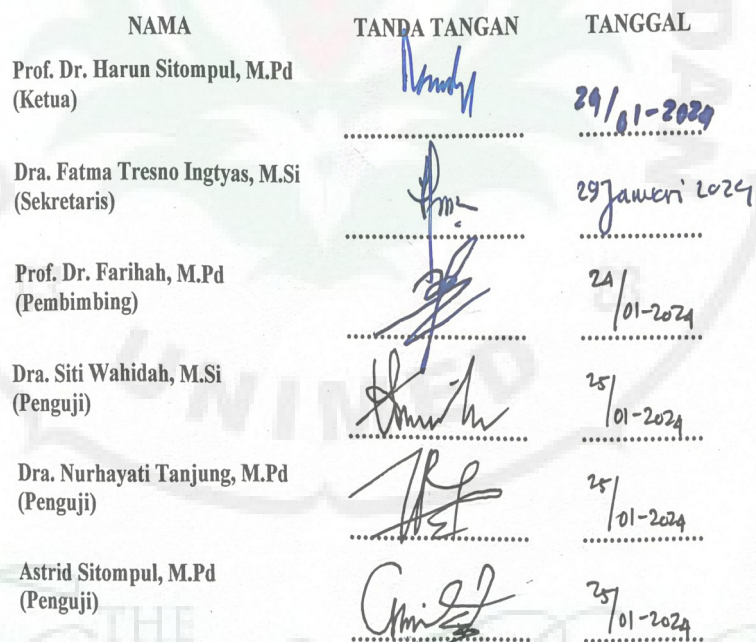 NAMA TANDA TANGAN TANGGAL
Prof. Dr. Harun Sitompul, M.Pd
(Ketua) 29/01-2024
Dra. Fatma Tresno Ingtyas, M.Si
(Sekretaris) 29 Januari 2024
Prof. Dr. Farihah, M.Pd
(Pembimbing) 24/01-2024
Dra. Siti Wahidah, M.Si
(Penguji) 25/01-2024
Dra. Nurhayati Tanjung, M.Pd
(Penguji) 25/01-2024
Astrid Sitompul, M.Pd
(Penguji) 25/01-2024
UNIMED
THE